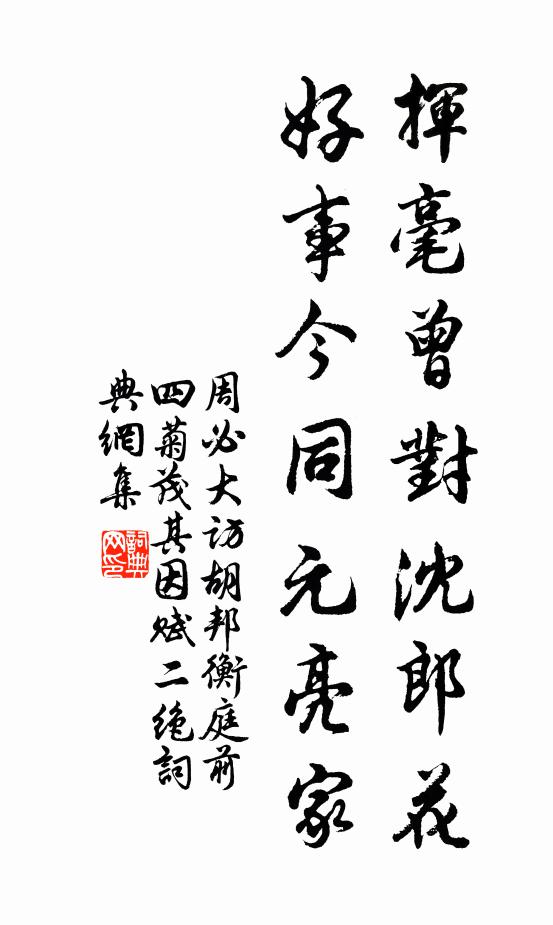 揮毫曾對沈郎花
好事今同元亮家
周必大访胡邦衡庭前
四菊茂其因赋二绝詞
典網集
詞典
网印